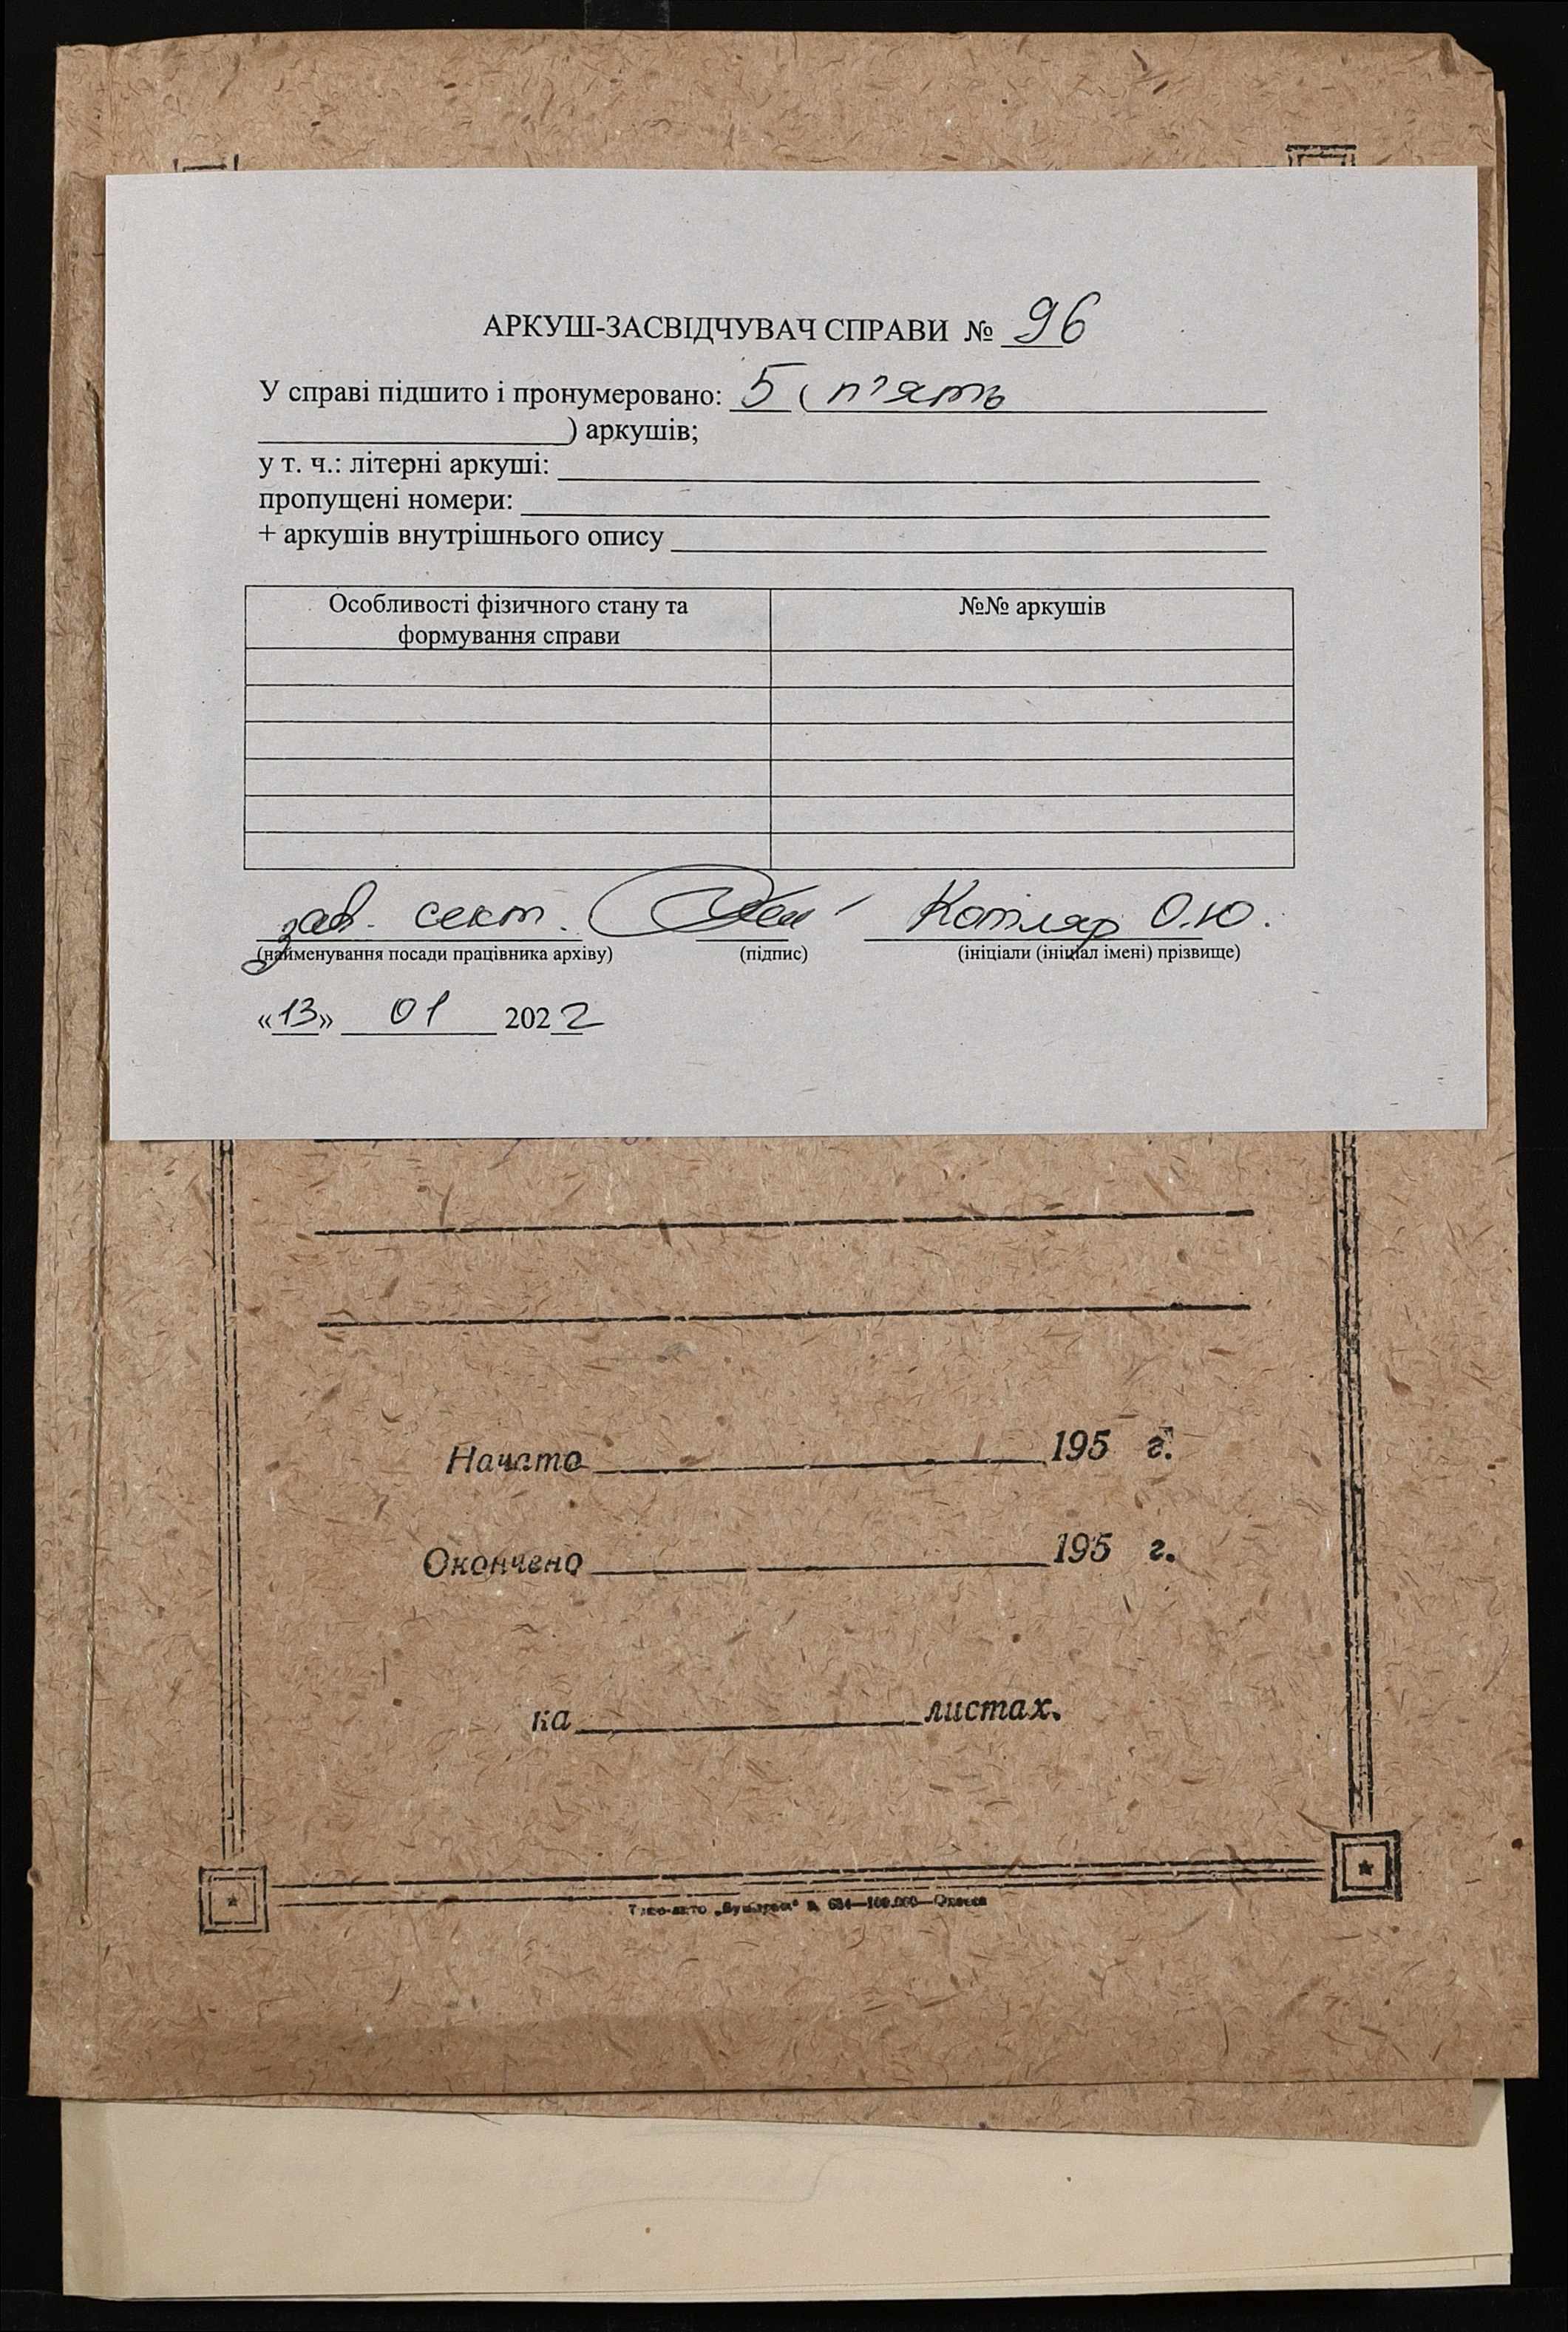 АРКУШ-ЗАСВІДЧУВАЧ СПРАВИ № 96
У справі підшито і пронумеровано: 5 ( п'ять
) аркушів;
у т. ч.: літерні аркуші:
пропущені номери:
+ аркушів внутрішнього опису
Особливості фізичного стану та формування справи
№№ аркушів
зав. сект. Котляр О.Ю.
(найменування посади працівника архіву) (підпис) (ініціали (ініціал імені) прізвище)
«13» 01 2022
Начато 195 г.
Окончено 195 г.
на листах.
684—100.000—Одесса